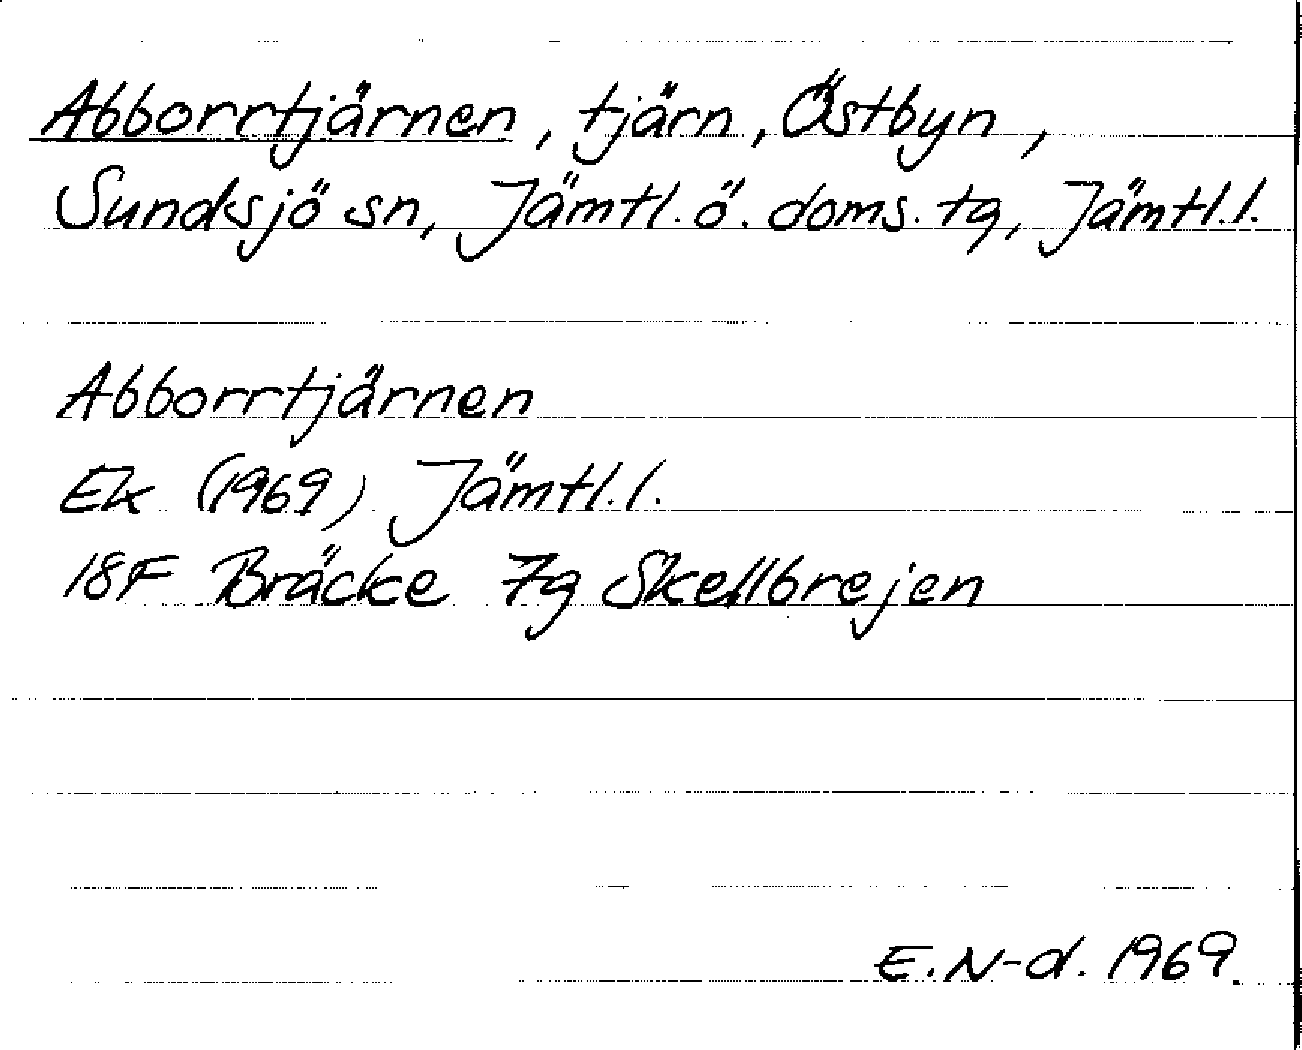 Abborrtjärnen, tjärn, Östbyn,
Sundsjö sn, Jämtl. ö. doms. tg, Jämtl. l.
Abborrtjärnen
Ek (1969) Jämtl. l.
18F Bräcke 7g Skellbrejen
E. N-d. 1969.